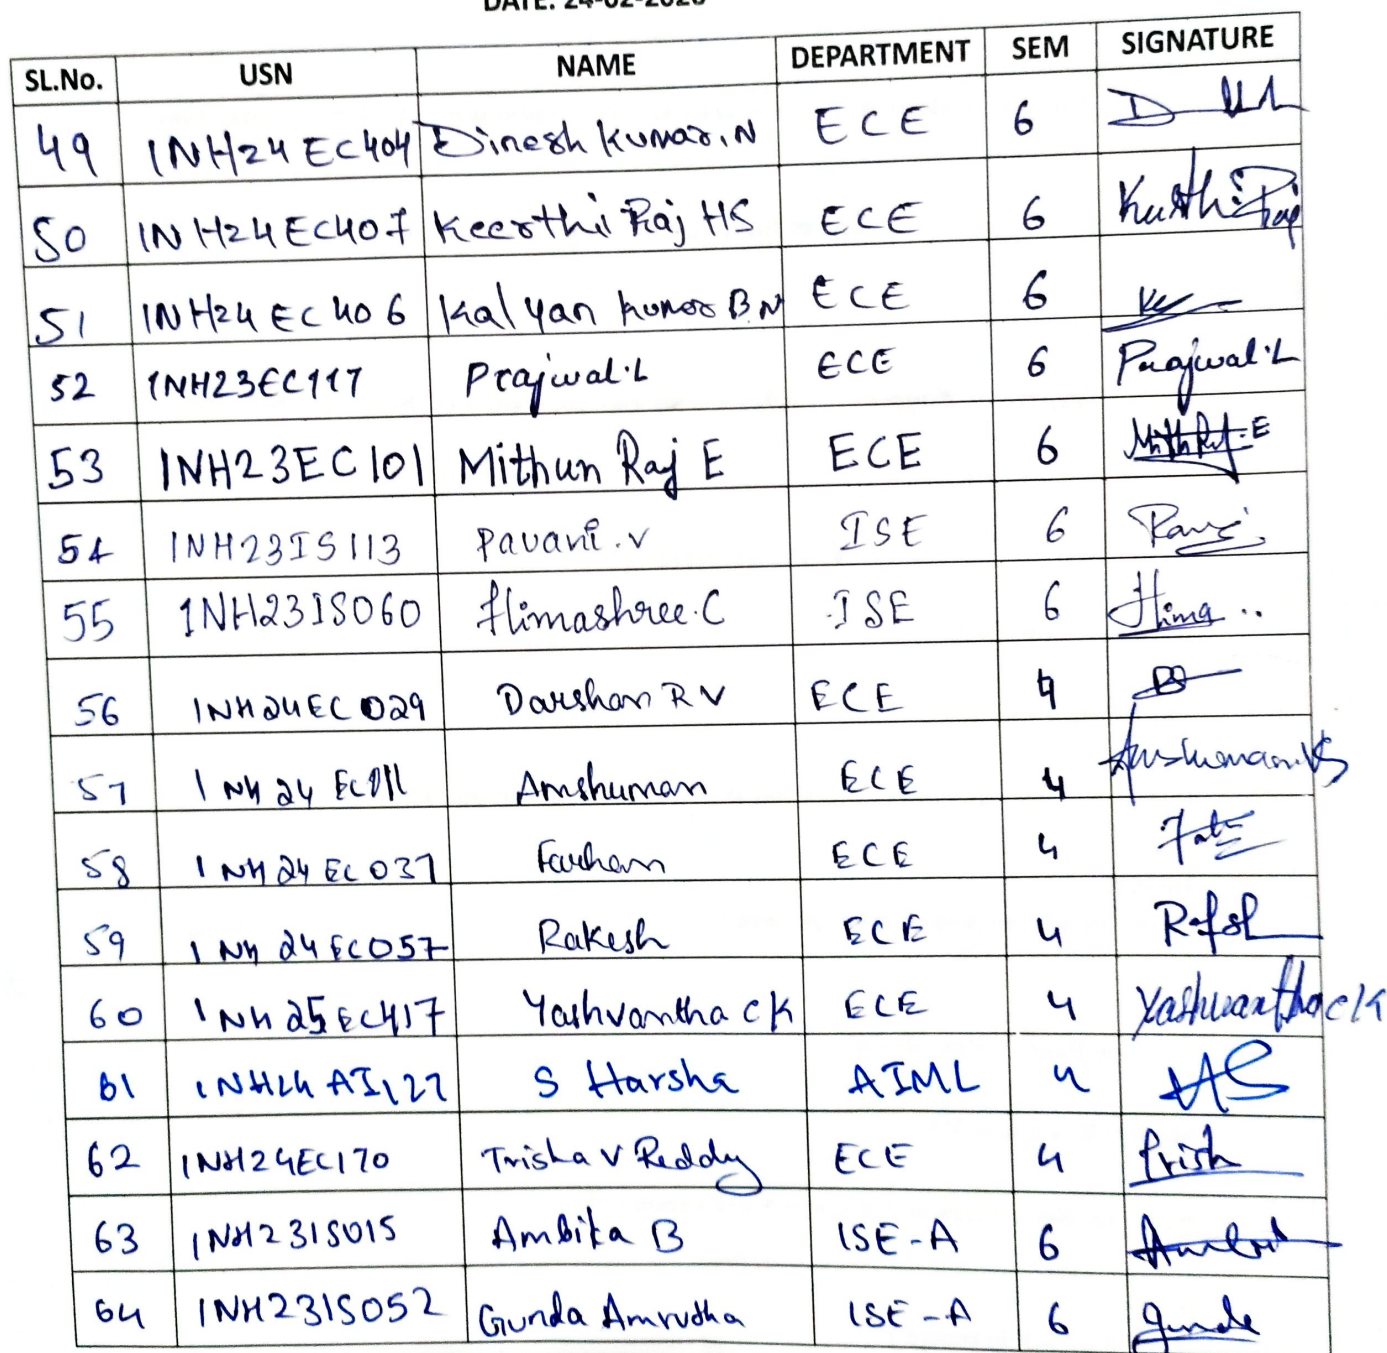 DATE: 24-02-2026
SL.No. USN NAME DEPARTMENT SEM SIGNATURE
49 1NH24EC404 Dinesh Kumar.N ECE 6
50 1NH24EC407 Keerthi Raj HS ECE 6 Keerthi Raj
51 1NH24EC406 Kalyan Kumar BN ECE 6
52 1NH23EC117 Prajwal.L ECE 6 Prajwal.L
53 1NH23EC101 Mithun Raj E ECE 6
54 1NH23IS113 Pavani.V ISE 6
55 1NH23IS060 Himashree.C ISE 6 Hima..
56 1NH24EC029 Darshan R V ECE 4
57 1NH24EC011 Amshuman ECE 4
58 1NH24EC037 Farhan ECE 4
59 1NH24EC057 Rakesh ECE 4
60 1NH25EC417 Yashvantha C K ECE 4 Yashwantha C K
61 1NH24AI127 S Harsha AIML 4 HS
62 1NH24EC170 Trisha V Reddy ECE 4
63 1NH23IS015 Ambika B ISE-A 6
64 1NH23IS052 Gunda Amrutha ISE-A 6